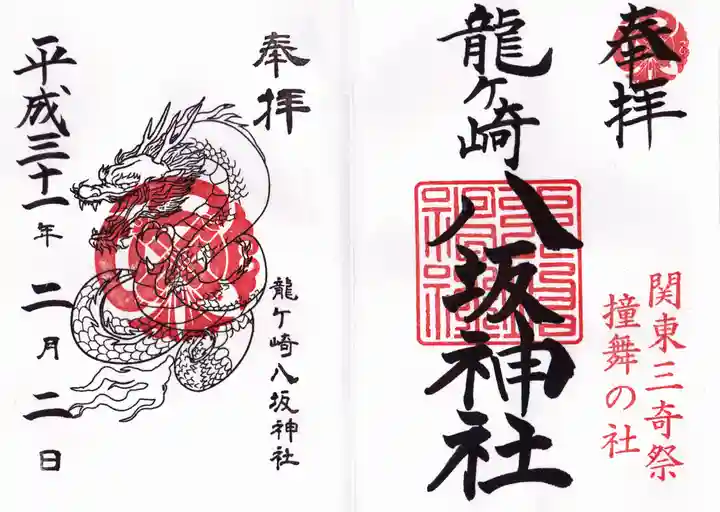 奉拝
龍ヶ崎八坂神社
関東三奇祭
撞舞の社
奉拝
龍ケ崎八坂神社
平成三十一年二月二日